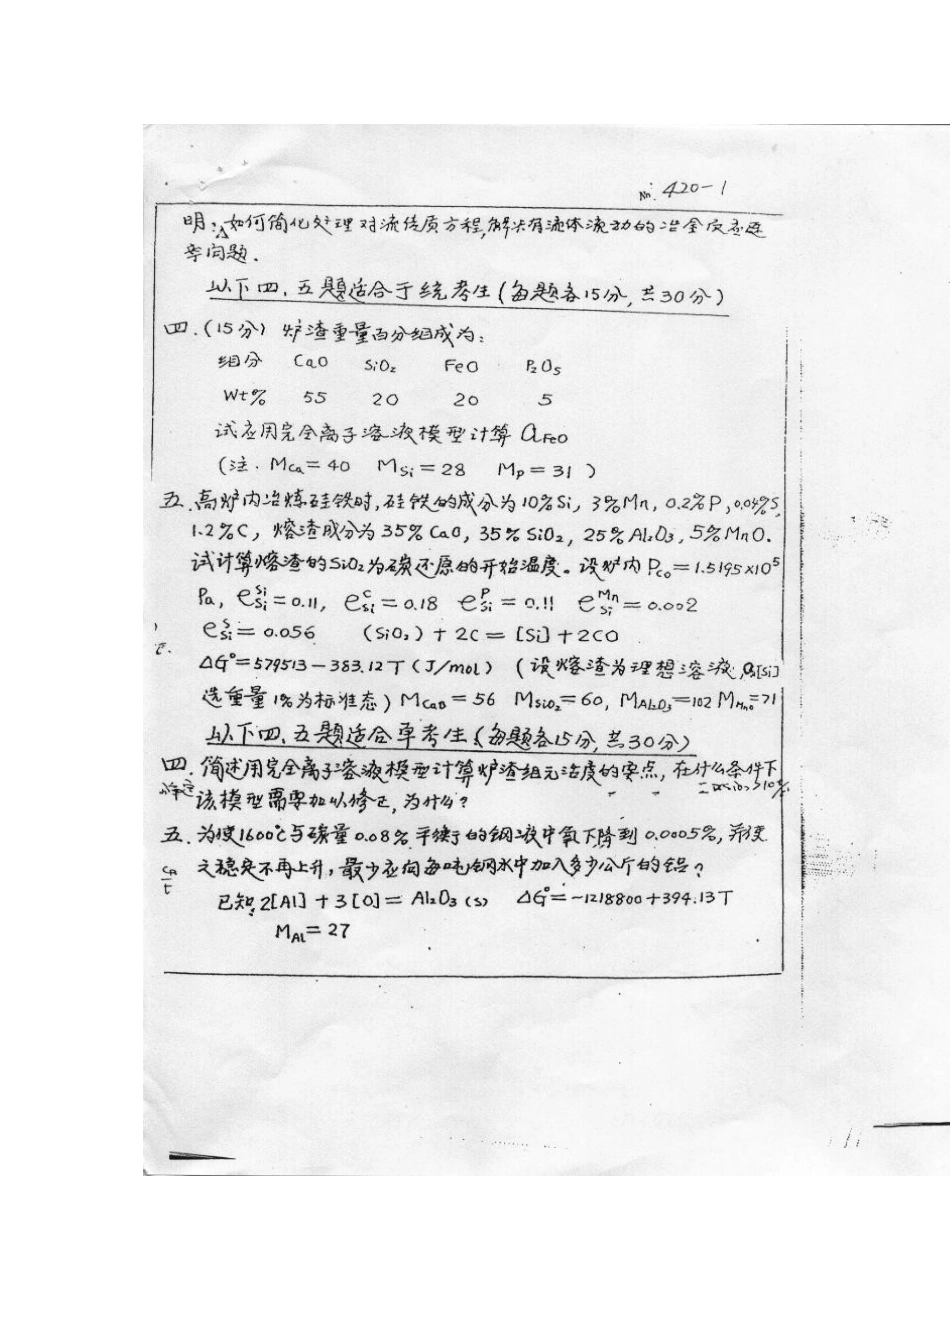 №: 420-1
明:如何简化处理对流传质方程,解决有流体流动的冶金反应速
率问题.
以下四、五题适合于统考生(每题各15分,共30分)
四.(15分)炉渣重量百分组成为:
组分 CaO SiO₂ FeO P₂O₅
Wt% 55 20 20 5
试应用完全离子溶液模型计算 aFeO
(注. MCa=40 MSi=28 MP=31 )
五.高炉内冶炼硅铁时,硅铁的成分为10%Si, 3%Mn, 0.2%P, 0.04%S,
1.2%C, 熔渣成分为35%CaO, 35%SiO₂, 25%Al₂O₃, 5%MnO.
试计算熔渣的SiO₂为碳还原的开始温度。设炉内 Pco=1.5195×10⁵
Pa, e^Si_Si=0.11, e^C_Si=0.18 e^P_Si=0.11 e^Mn_Si=0.002
e^S_Si=0.056 (SiO₂)+2C=[Si]+2CO
ΔG°=579513-383.12T (J/mol) (设熔渣为理想溶液,a[Si]
选重量1%为标准态) MCaO=56 MSiO₂=60, MAl₂O₃=102 MMnO=71
以下四、五题适合单考生(每题各15分,共30分)
四.简述用完全离子溶液模型计算炉渣组元活度的要点,在什么条件下
该模型需要加以修正,为什么?
五.为使1600℃与碳量0.08%平衡的钢液中氧下降到0.0005%,并使
之稳定不再上升,最少应向每吨钢水中加入多少公斤的铝?
已知: 2[Al]+3[O]=Al₂O₃(s) ΔG°=-1218800+394.13T
MAl=27